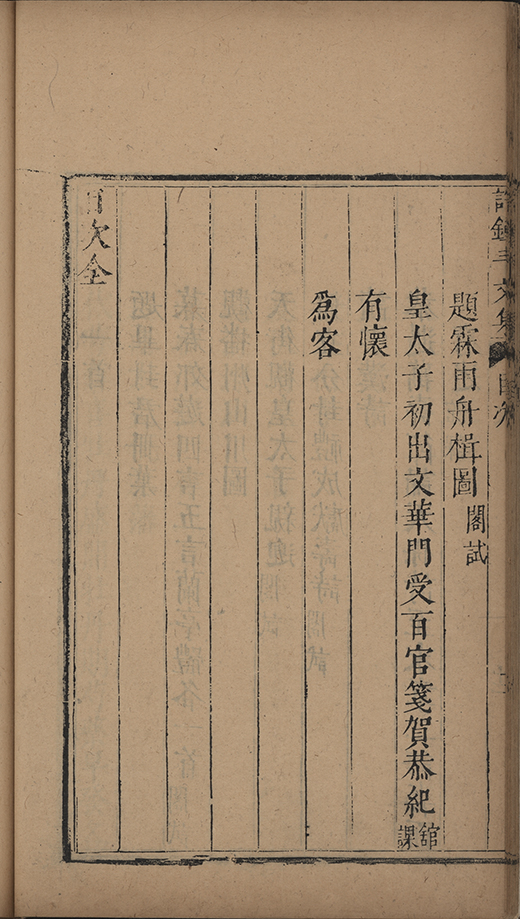 集 目次
題霖雨舟楫圖 閣試
皇太子初出文華門受百官箋賀恭紀 館課
有懷
爲客
目次全